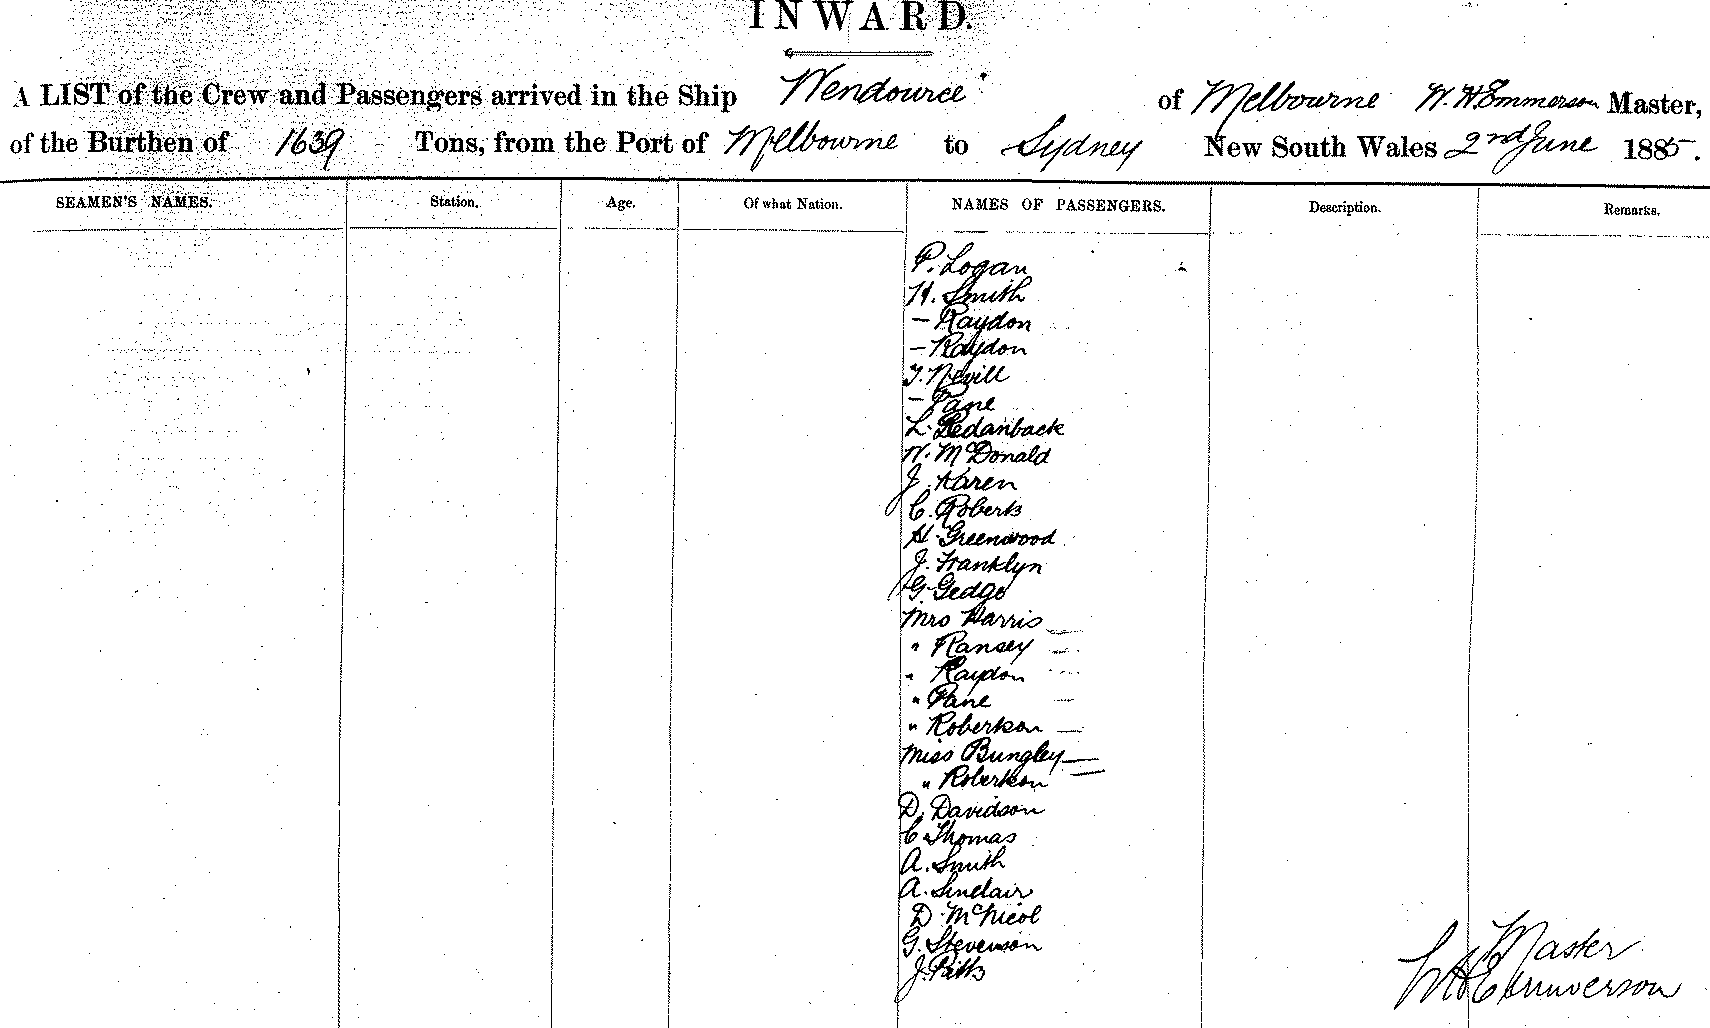 INWARD.
A LIST of the Crew and Passengers arrived in the Ship Wendouree of Melbourne W. H Emmerson Master,
of the Burthen of 1639 Tons, from the Port of Melbourne to Sydney New South Wales 2nd June 1885.
SEAMEN'S NAMES. Station. Age. Of what Nation. NAMES OF PASSENGERS. Description. Remarks.
P. Logan
H. Smith
— Raydon
— Raydon
T. Nevill
— Pane
L. Ledanback
W. McDonald
J. Karen
C. Roberts
H. Greenwood
J. Franklyn
G. Gedge
Mrs Harris —
" Ransey —
" Raydon —
" Pane —
" Robertson —
Miss Bungley —
" Robertson —
D. Davidson
C. Thomas
A. Smith
A. Sinclair
D. McNicol
G. Stevenson
J. Pitts
Master
W H Emmerson